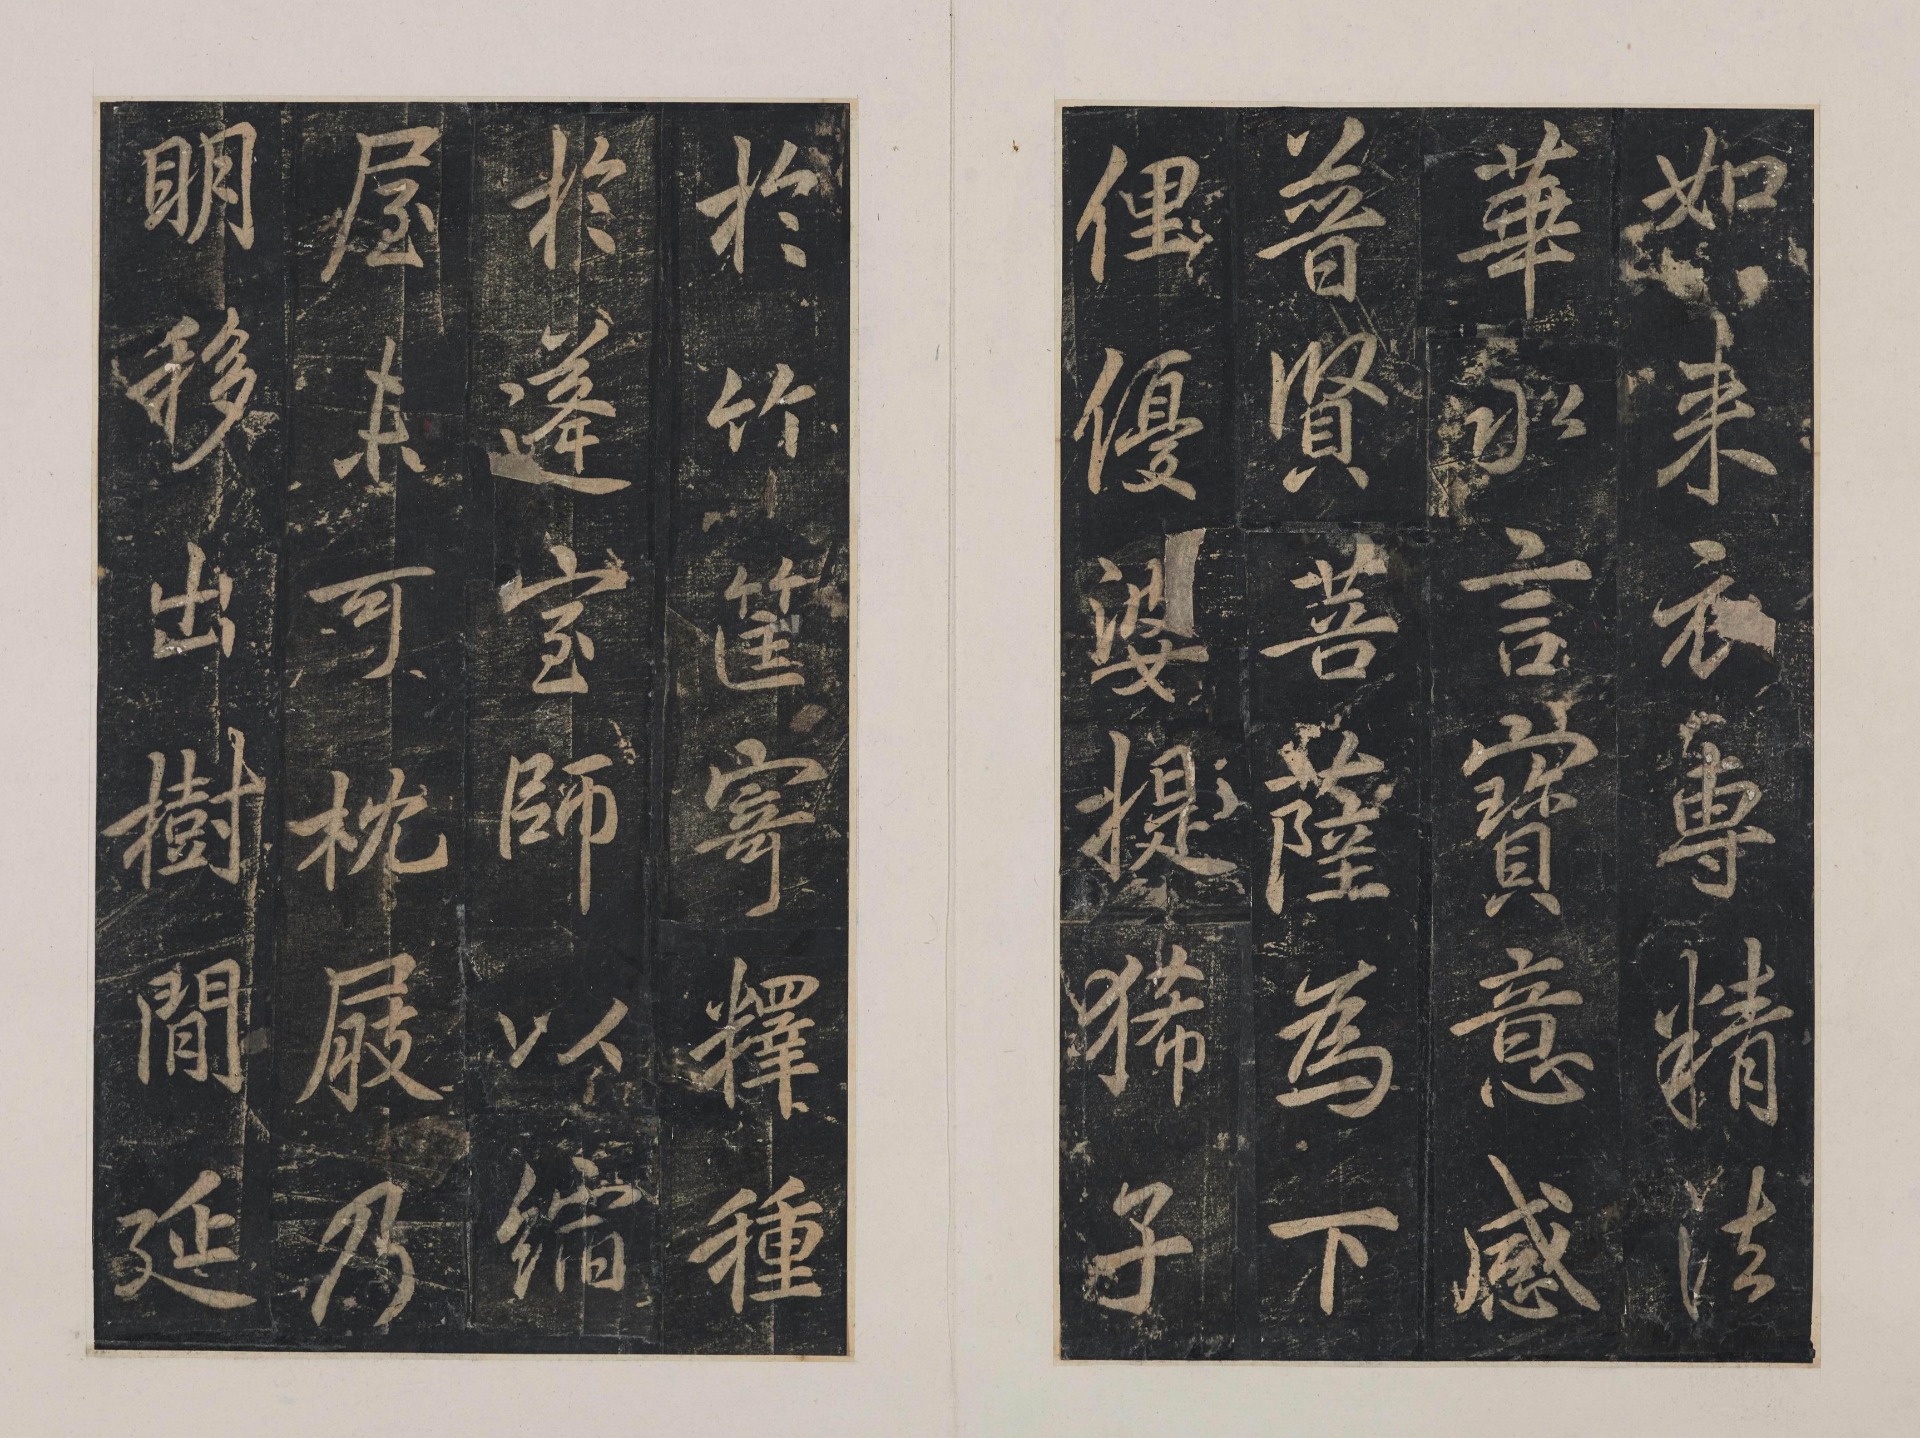 如来衣專精法
華永言寶意感
普賢菩薩為下
俚優婆提狶子
於竹筐寄釋種
於蓬室師以縮
屋未可枕屐乃
明移出樹間延